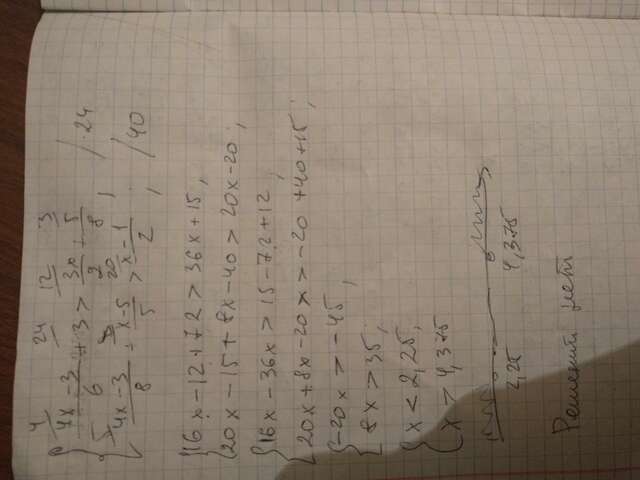 4 24 12 3
{ (4x-3)/6 + 3 > 3x/2 + 5/8, /·24
5 8 20
{ (4x-3)/8 + (x-5)/5 > (x-1)/2, /40
{ 16x-12+72 > 36x+15;
{ 20x-15+8x-40 > 20x-20;
{ 16x-36x > 15-72+12;
{ 20x+8x-20x > -20+40+15;
{ -20x > -45;
{ 8x > 35;
{ x < 2,25;
{ x > 4,375
2,25 4,375
Решений нет